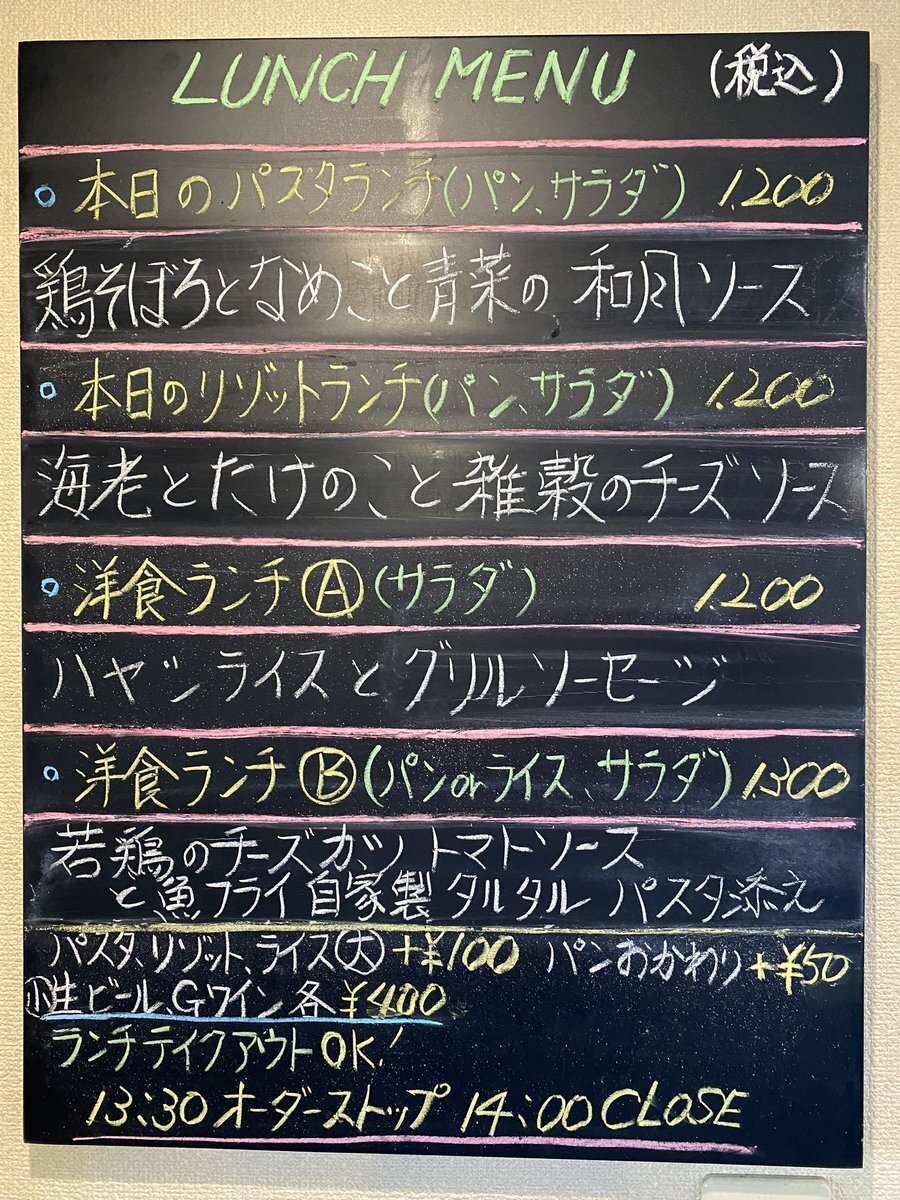 LUNCH MENU (税込)
○ 本日のパスタランチ(パン、サラダ) 1.200
鶏そぼろとなめこと青菜の 和風ソース
○ 本日のリゾットランチ(パン、サラダ) 1.200
海老とたけのこと雑穀のチーズソース
○ 洋食ランチⒶ(サラダ) 1.200
ハヤシライスとグリルソーセージ
○ 洋食ランチⒷ(パンorライス、サラダ) 1.300
若鶏のチーズカツ トマトソース
と魚フライ自家製タルタル パスタ添え
パスタ、リゾット、ライス㊅+¥100 パンおかわり+¥50
小生ビール、Gワイン各¥400
ランチテイクアウトOK!
13:30オーダーストップ 14:00CLOSE